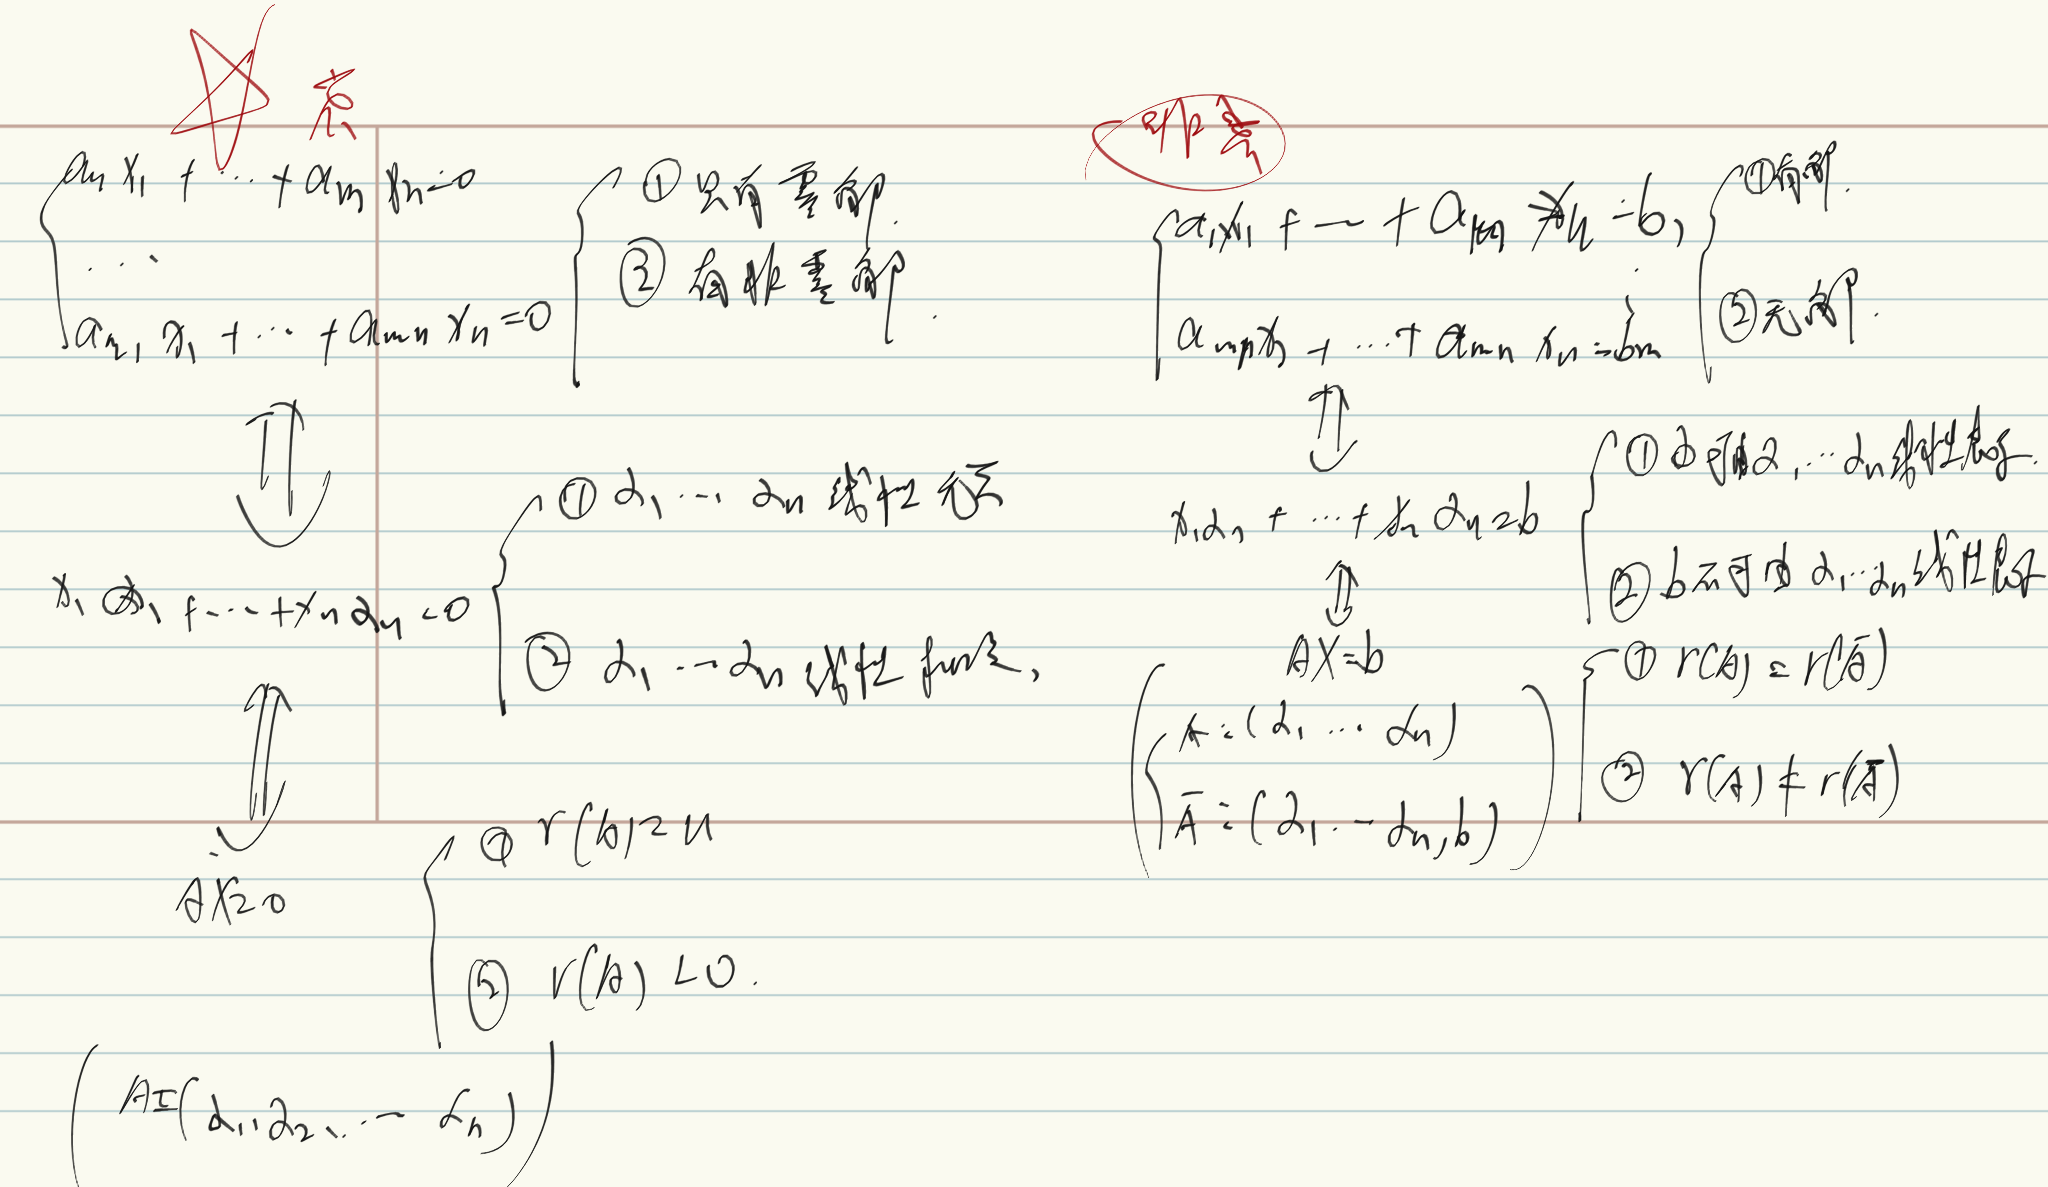 齐
a₁₁x₁ + ⋯ + a₁ₙxₙ=0
⋯
aₘ₁x₁ + ⋯ + aₘₙxₙ=0
① 只有零解.
② 有非零解.
⇕
x₁α₁ + ⋯ + xₙαₙ=0
① α₁ ⋯ αₙ 线性无关
② α₁ ⋯ αₙ 线性相关,
⇕
AX=0
① r(A)=n
② r(A) <0.
A=(α₁,α₂,⋯ αₙ)
非齐
a₁x₁ + ⋯ + a₁ₙxₙ=b₁
⋮
aₘ₁x₁ + ⋯ + aₘₙxₙ=bₘ
①有解.
②无解.
⇕
x₁α₁ + ⋯ + xₙαₙ=b
① b可由α₁⋯αₙ线性表示.
② b不可由α₁⋯αₙ线性表示
⇕
AX=b
A=(α₁ ⋯ αₙ)
Ā=(α₁ ⋯ αₙ,b)
① r(A) = r(Ā)
② r(A) ≠ r(Ā)